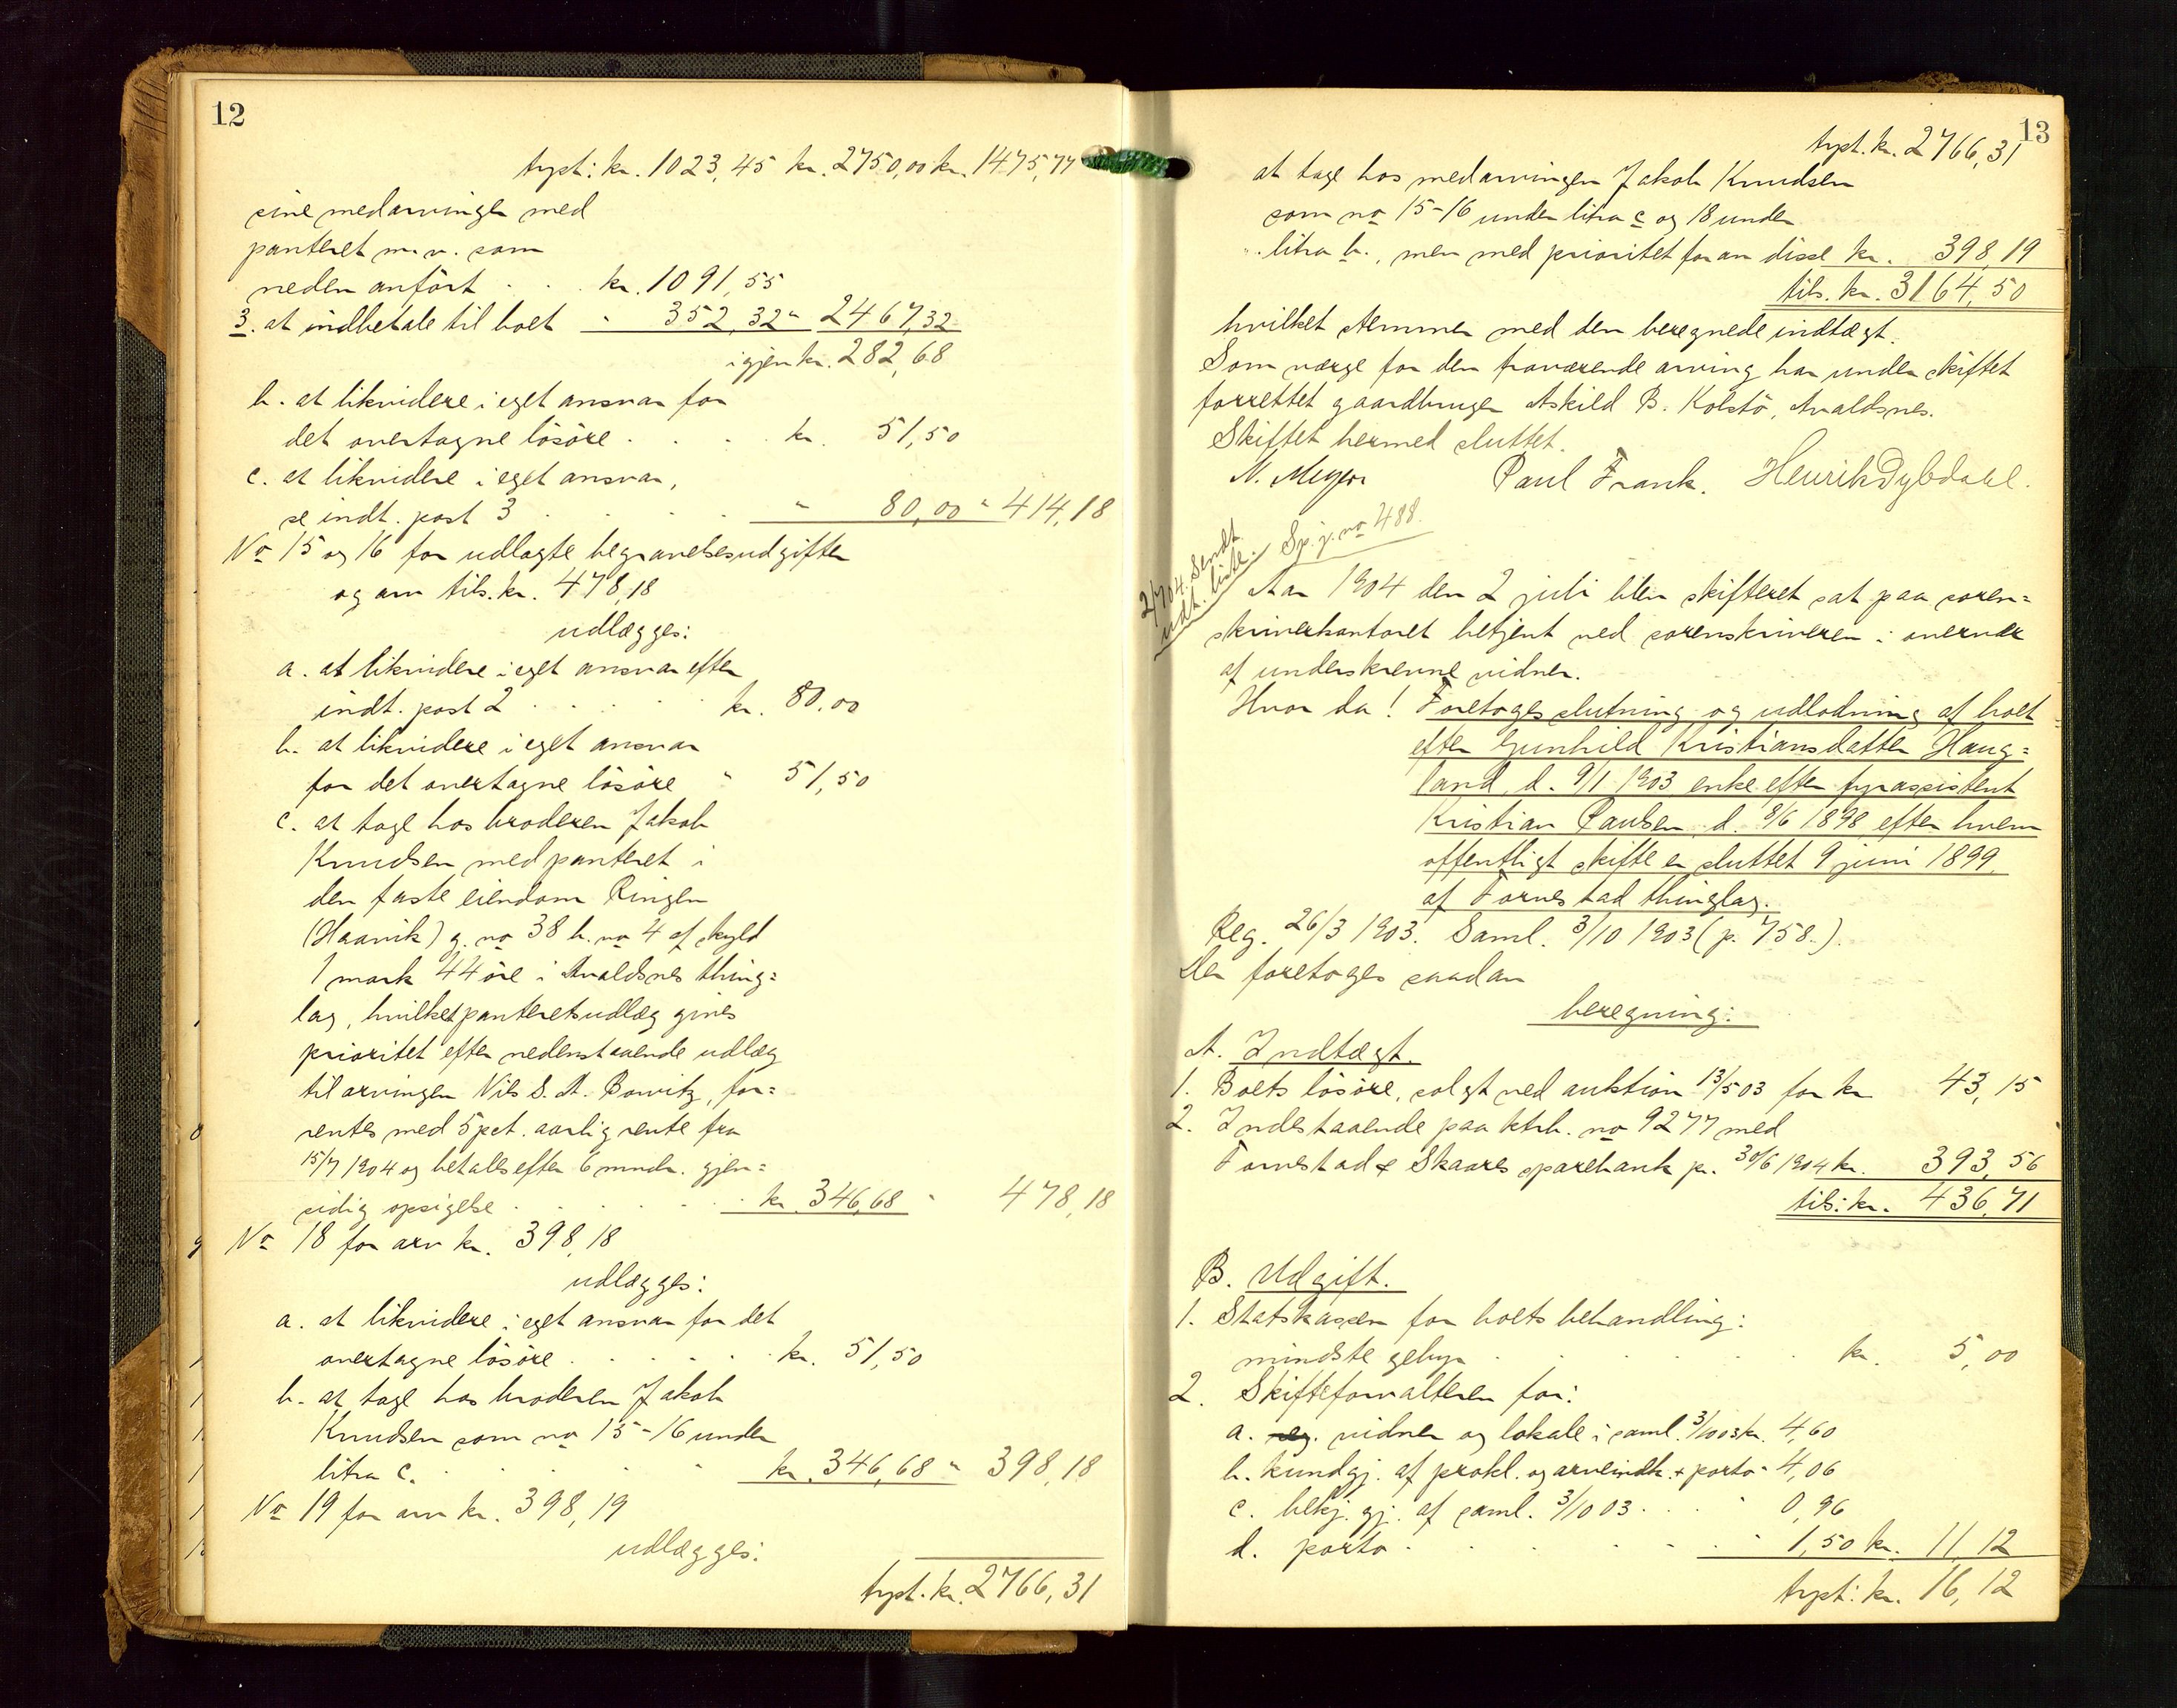 12
trpt: kr. 1023,45 kr. 2750,00 kr. 1475,77
sine medarvinger med
panteret m.v. som
neden anført . . . kr. 1091,55
3. at indbetale til boet " 352,32 " 2467,32
igjen kr. 282,68
b. at likvidere i eget ansvar for
det overtagne lösöre . . . kr. 51,50
c. at likvidere i eget ansvar,
se indt. post 3 . . . . " 80,00 " 414,18
No 15 og 16 for udlagte begravelsesudgifter
og arv tils. kr. 478,18
udlægges:
a. at likvidere i eget ansvar efter
indt. post 2 . . . . . kr. 80,00
b. at likvidere i eget ansvar
for det overtagne lösöre " 51,50
c. at tage hos broderen Jakob
Knudsen med panteret i
den faste eiendom Ringen
(Haavik) g. no 38 b. no 4 af skyld
1 mark 44 öre i Avaldsnes thing=
lag, hvilket panteretsudlæg gives
prioritet efter nedenstaaende udlæg
til arvingen Nils S. A. Bowitz, for=
rentes med 5 pct. aarlig rente fra
15/7 1904 og betales efter 6 mndr. gjen=
sidig opsigelse . . . . . kr. 346,68 " 478,18
No 18 for arv kr. 398,18
udlægges:
a. at likvidere i eget ansvar for det
overtagne lösöre . . . . . kr. 51,50
b. at tage hos broderen Jakob
Knudsen som no 15-16 under
litra c. . . . . kr. 346,68 " 398,18
No 19 for arv kr. 398,19
udlægges:
trpt. kr. 2766,31
13
trpt. kr. 2766,31
at tage hos medarvingen Jakob Knudsen
som no 15-16 under litra c og 18 under
litra b., men med prioritet foran disse kr. 398,19
tils. kr. 3164,50
hvilket stemmer med den beregnede indtægt.
Som værge for den fraværende arving har under skiftet
forrettet gaardbruger Askild B. Kolstö, Avaldsnes.
Skiftet hermed sluttet.
N. Meyer Paul Frank. Henrik Dybdahl.
2/7 04. Sendt
udt. liste.
Sp.j. no 488.
Aar 1904 den 2 juli blev skifteret sat paa soren=
skriverkontoret betjent ved sorenskriveren i overvær
af underskrevne vidner.
Hvor da! Foretoges slutning og udlodning af boet
efter Gunhild Kristiansdatter Haug=
land, d. 9/1 1903 enke efter fyrassistent
Kristian Paulsen, d. 8/6 1898 efter hvem
offentligt skifte er sluttet 9 juni 1899.
af Tornestad thinglag.
Reg. 26/3 1903. Saml. 3/10 1903 (p. 758.).
Der foretoges saadan
beregning:
A. Indtægt.
1. Boets lösöre, solgt ved auktion 13/5 03 for kr. 43,15
2. Indestaaende paa ktrb. no 9277 med
Tornestad & Skaares sparebank pr. 30/6 1904 kr. 393,56
tils: kr. 436,71
B. Udgift.
1. Statskassen for boets behandling:
mindste gebyr . . . . . kr. 5,00
2. Skifteforvalteren for:
a. reg. vidner og lokale i saml. 3/10 03 kr. 4,60
b. kundgj. af prokl. og arveindk. + porto " 4,06
c. bekj. gj. af saml. 3/10 03 . . . " 0,96
d. porto . . . . . 1,50 kr. 11,12
trpt: kr. 16,12